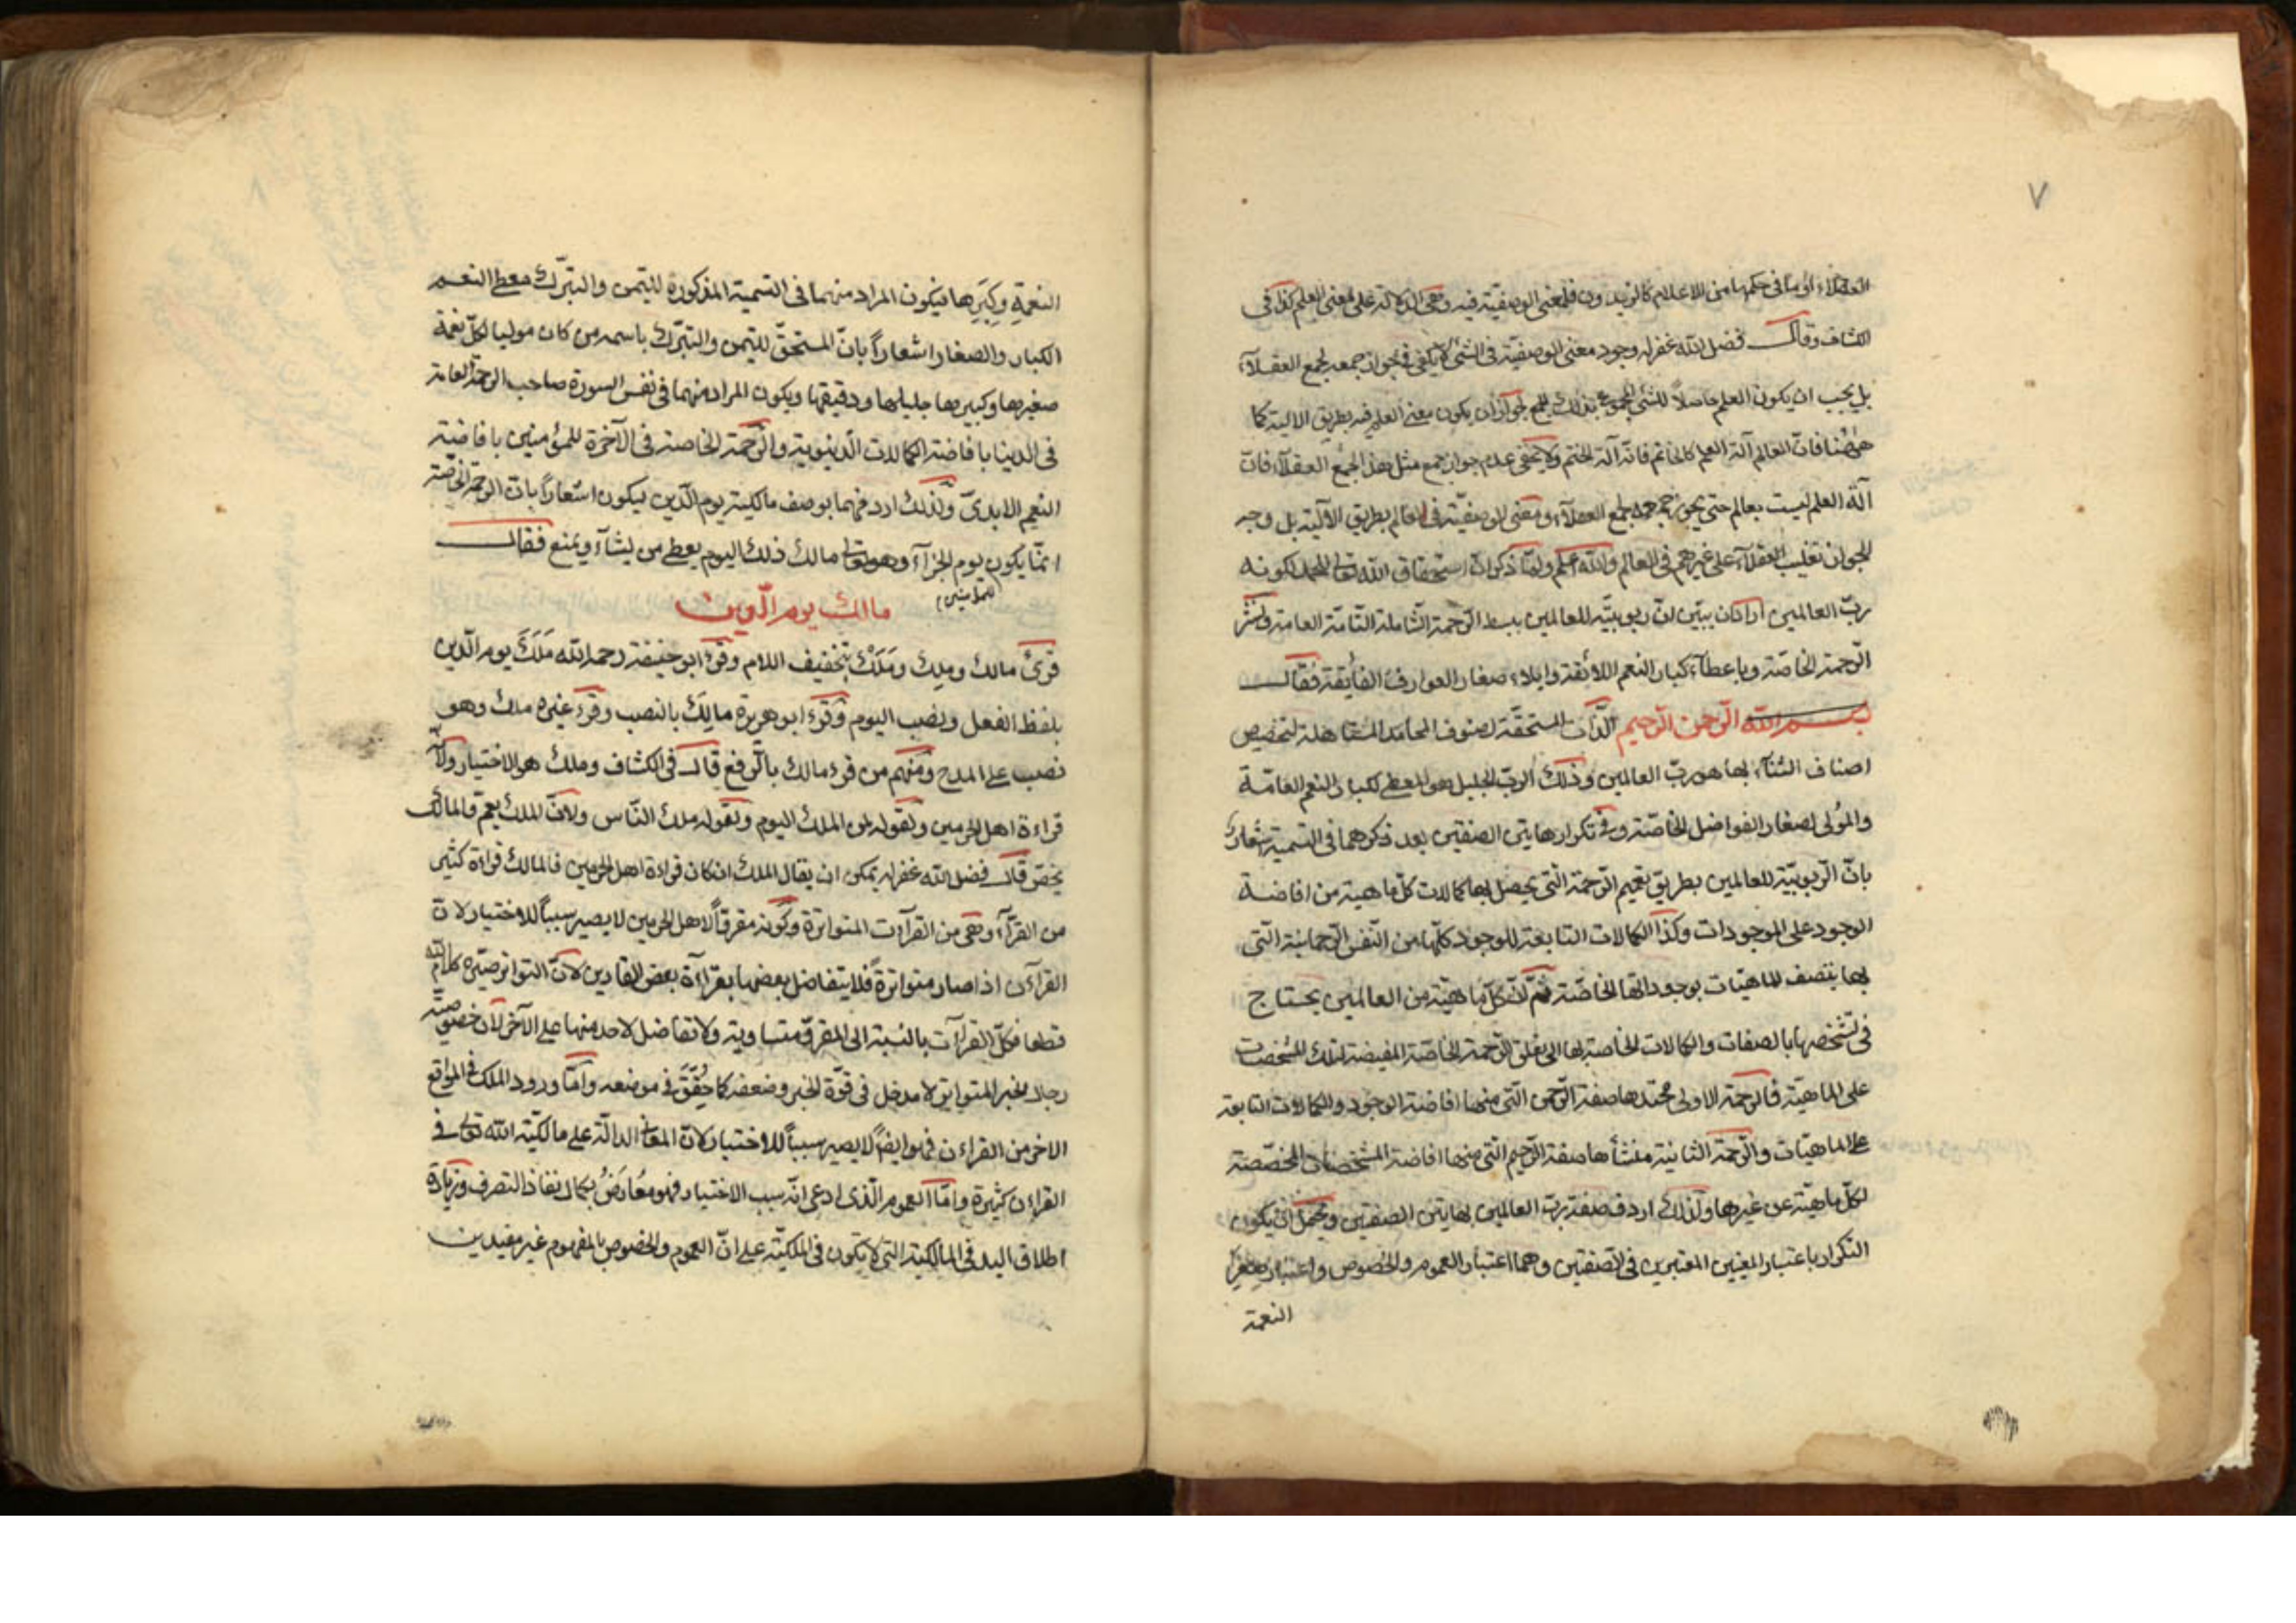 ٧
العقلاء او ما فى حكمها من الاعلام كالزيد ون فلمعنى الوصفية فيه وهى الدلالة على معنى العلم كذا فى
الكشاف وقال فضل الله غفر له وجود معنى الوصفية فى الشئ لا يكفى فى جواز جمعه بجمع العقلاء
بل يجب ان يكون العلم حاصلاً للشئ المجموع بذلك الجمع لجواز ان يكون معنى العلم فيه بطريق الالية كما
ههنا فان العالم آلة العلم كالخاتم فانه آلة الختم ولا يخفى عدم جواز جمع مثل هذا الجمع العقلاء فان
آلة العلم ليست بعالم حتى يجوز جمعه بجمع العقلاء ومعنى الوصفية فى العالم بطريق الآلية بل وجه
الجواز تغليب العقلاء على غيرهم فى العالم والله اعلم ولما ذكر ان استحقاق الله تعالى للحمد لكونه
ربّ العالمين اراد ان يبيّن انّ ربوبيّته للعالمين ببسط الرّحمة الشّاملة التّامّة العامة ونشر
الرّحمة الخاصّة وباعطآء كبار النعم اللائقة وايلاء صغار العوارف الفايقة فقال
بسم الله الرّحمن الرّحيم الذّات المستحقّة لصنوف المحامد لتخصيص
اصناف الثنآء بها هو ربّ العالمين وذلك الربّ الجليل هو المعطى لكبار النعم العامّة
والمُولى لصغار الفواضل الخاصّة وفى تكرار هايتين الصفتين بعد ذكرهما فى التسمية اشعار
بانّ الرّبوبيّة للعالمين بطريق تعميم الرّحمة التى يحصل بها كمالات كلّ ماهية من افاضة
الوجود على الموجودات وكذا الكمالات التابعة للوجود كلّها من النّفس الرّحمانية التّى
بها يتصف الماهيّات بوجوداتها الخاصّة ثمّ انّ كلّ ماهيّة من العالمين يحتاج
فى تشخّصها بالصفات والكمالات الخاصة بها الى تعلق الرّحمة الخاصّة المفيضة لتلك المشخصات
على الماهيّة فالرحمة الاولى محتدها صفة الرّحمن التّى منها افاضة الوجود والكمالات التابعة
على الماهيّات والرّحمة الثانية منشأها صفة الرّحيم التّى منها افاضة المشخصات المخصّصة
لكلّ ماهيّة عن غيرها ولذلك اردف صفة ربّ العالمين بهايتين الصفتين ويحتمل ان يكون
التكرار باعتبار المعنيين المعتبرين فى الصّفتين وهما اعتبار العموم والخصوص واعتبار صغر
النعمة
النعمةِ وكِبَرِها فيكون المراد منهما فى التسمية المذكورة للتيمن والتبرّك معطى النعم
الكبار والصغار اشعاراً بانّ المستحقّ للتيمن والتبرّك باسمه من كان موليا لكلّ نعمة
صغيرها وكبيرها جليلها ودقيقها ويكون المراد منهما فى نفس السورة صاحب الرحمة العامة
فى الدنيا بافاضة الكمالات الدّنيوية والرّحمة الخاصة فى الآخرة للمؤمنين بافاضة
النعيم الابدىّ ولذلك اردفهما بوصف مالكية يوم الدّين ليكون اشعاراً بانّ الرحمة الخاصّة
انّما يكون يوم الجزآء وهو تعالى مالك ذلك اليوم يعطى من يشآء ويمنع فقال
للمؤمنين
مالك يوم الدّين
قرئ مالك وملِك ومَلْك بتخفيف اللام وقرء ابو حنيفة رحمه الله مَلَكَ يوم الدّين
بلفظ الفعل ونصب اليوم وقرء ابو هريرة مالِكَ بالنصب وقرء غيره ملك وهو
نصب على المدح ومنهم من قرء مالك بالرّفع قال فى الكشاف وملك هو الاختيار ولانّه
قراءة اهل الحرمين ولقوله لمن الملك اليوم ولقوله ملك النّاس ولانّ الملك يعمّ والمالك
يخصّ قال فضل الله غفر له يمكن ان يقال الملك ان كان قراءة اهل الحرمين فالمالك قراءة كثير
من القرّآء وهى من القرآءت المتواترة وكونه مقرؤاً لاهل الحرمين لا يصير سبباً للاختيار لانّ
القرآن اذا صار متواترةً فلا يتفاضل بعضها بقرآءة بعض القارين لانّ التواتر صيّره كلام الله
قطعا فكلّ القرآت بالنسبة الى المقروّ متساوية ولا تفاضل لاحد منها على الآخر لان خصوصية
رجال الخبر المتواتر لا مدخل فى قوّة الخبر وضعفه كما حُقّقَ فى موضعه وامّا ورود الملك فى المواقع
الاخر من القراءن فهو ايضاً لا يصير سبباً للاختيار لانّ المعانى الدالّة على مالكيّة الله تعالى فى
القراءن كثيرة وامّا العموم الّذى ادعى انّه سبب الاختيار فهو معُارَضُ بكمال نفاذ التصرف وزيادة
اطلاق اليد فى المالكية التى لا يكون فى الملكيّة على انّ العموم والخصوص بالمفهوم غير مفيدين